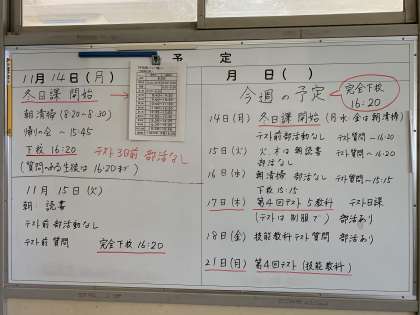 予定
11月14日(月)
冬日課 開始
朝清掃 (8:20~8:30)
帰りの会 ~15:45
下校 16:20 テスト3日前 部活なし
(質問のある生徒は16:20まで)
11月 15日(火)
朝:読書
テスト前 部活動なし
テスト前 質問 完全下校 16:20
月 日( )
今週の予定
完全下校
16:20
14日(月) 冬日課 開始 (月水金は朝清掃)
テスト前部活なし テスト質問 ~16:20
15日(火) 火、木は朝読書 テスト質問 ~16:20
部活なし
16日(水) 朝清掃 部活なし テスト質問 ~15:15
下校 15:15
17日(木) 第4回テスト 5教科 テスト日課
(テストは制服で) 部活あり
18日(金) 技能教科テスト質問 部活あり
21日(月) 第4回テスト (技能教科)